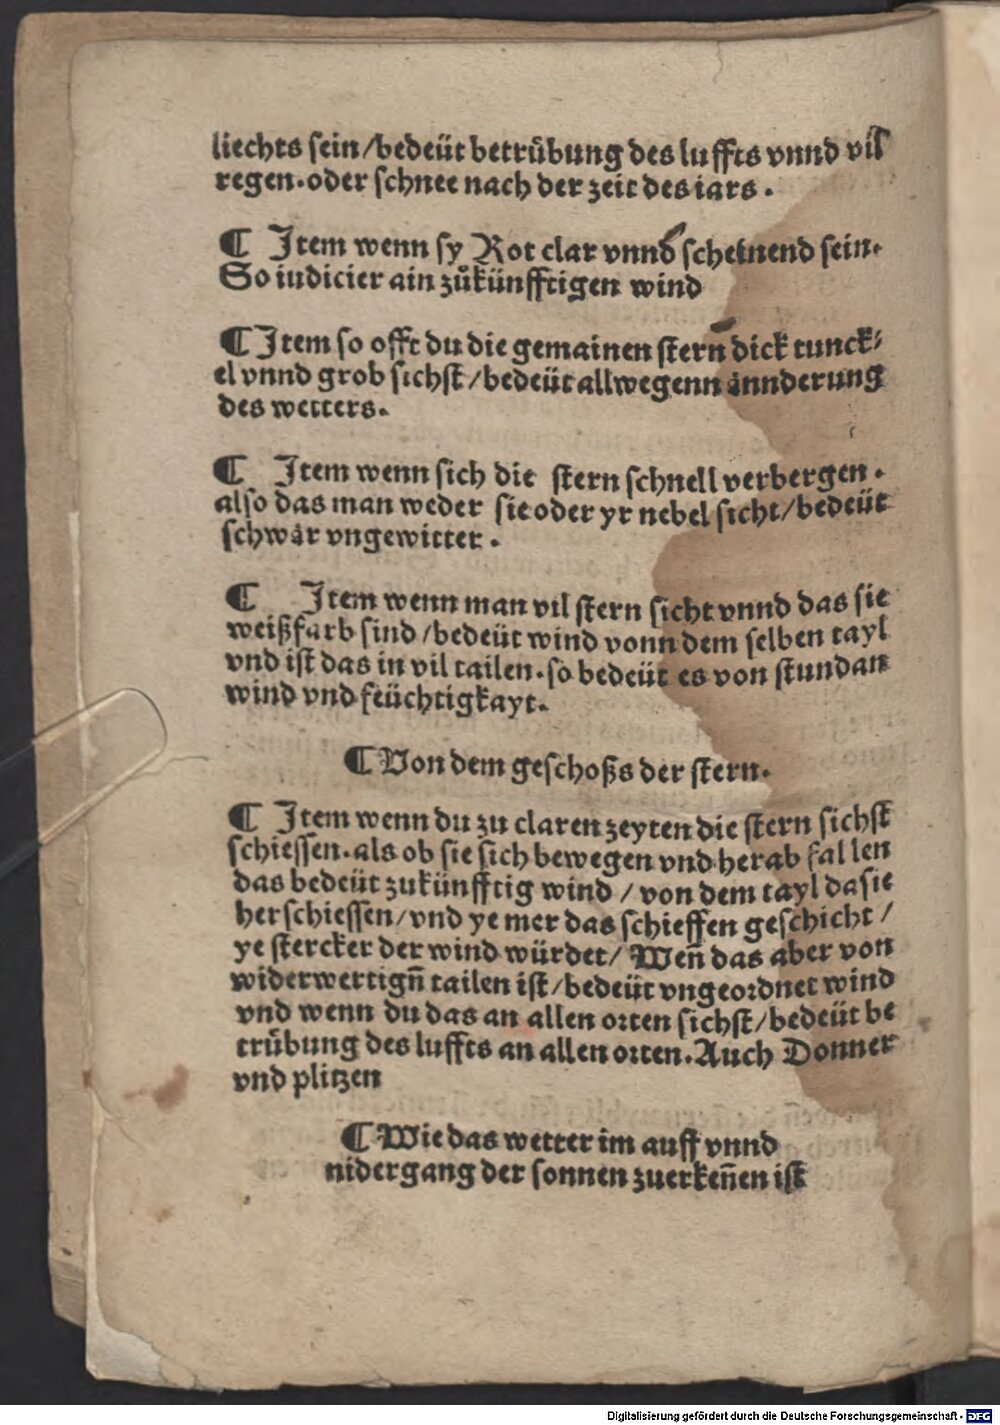 liechts sein/bedeüt betrůbung des luffts vnnd vil
regen.oder schnee nach der zeit des iars.
¶ Item wenn sy Rot clar vnnd scheinend sein.
So iudicier ain zůkünfftigen wind
¶ Item so offt du die gemainen stern dick tunck⸗
el vnnd grob sichst/bedeüt allwegenn ånnderung
des wetters.
¶ Item wenn sich die stern schnell verbergen.
also das man weder sie oder yr nebel sicht/bedeüt
schwår vngewitter.
¶ Item wenn man vil stern sicht vnnd das sie
weißfarb sind/bedeüt wind vonn dem selben tayl
vnd ist das in vil tailen.so bedeüt es von stundan
wind vnd feüchtigkayt.
¶ Von dem geschoßs der stern.
¶ Item wenn du zu claren zeyten die stern sichst
schiessen.als ob sie sich bewegen vnd herab fallen
das bedeüt zukünfftig wind / von dem tayl da sie
her schiessen/vnd ye mer das schieffen geschicht/
ye stercker der wind würdet/ Weñ das aber von
widerwertigñ tailen ist/bedeüt vngeordnet wind
vnd wenn du das an allen orten sichst/bedeüt be
trůbung des luffts an allen orten.Auch Donner
vnd plitzen
¶ Wie das wetter im auff vnnd
nidergang der sonnen zuerkeñen ist
Digitalisierung gefördert durch die Deutsche Forschungsgemeinschaft - DFG